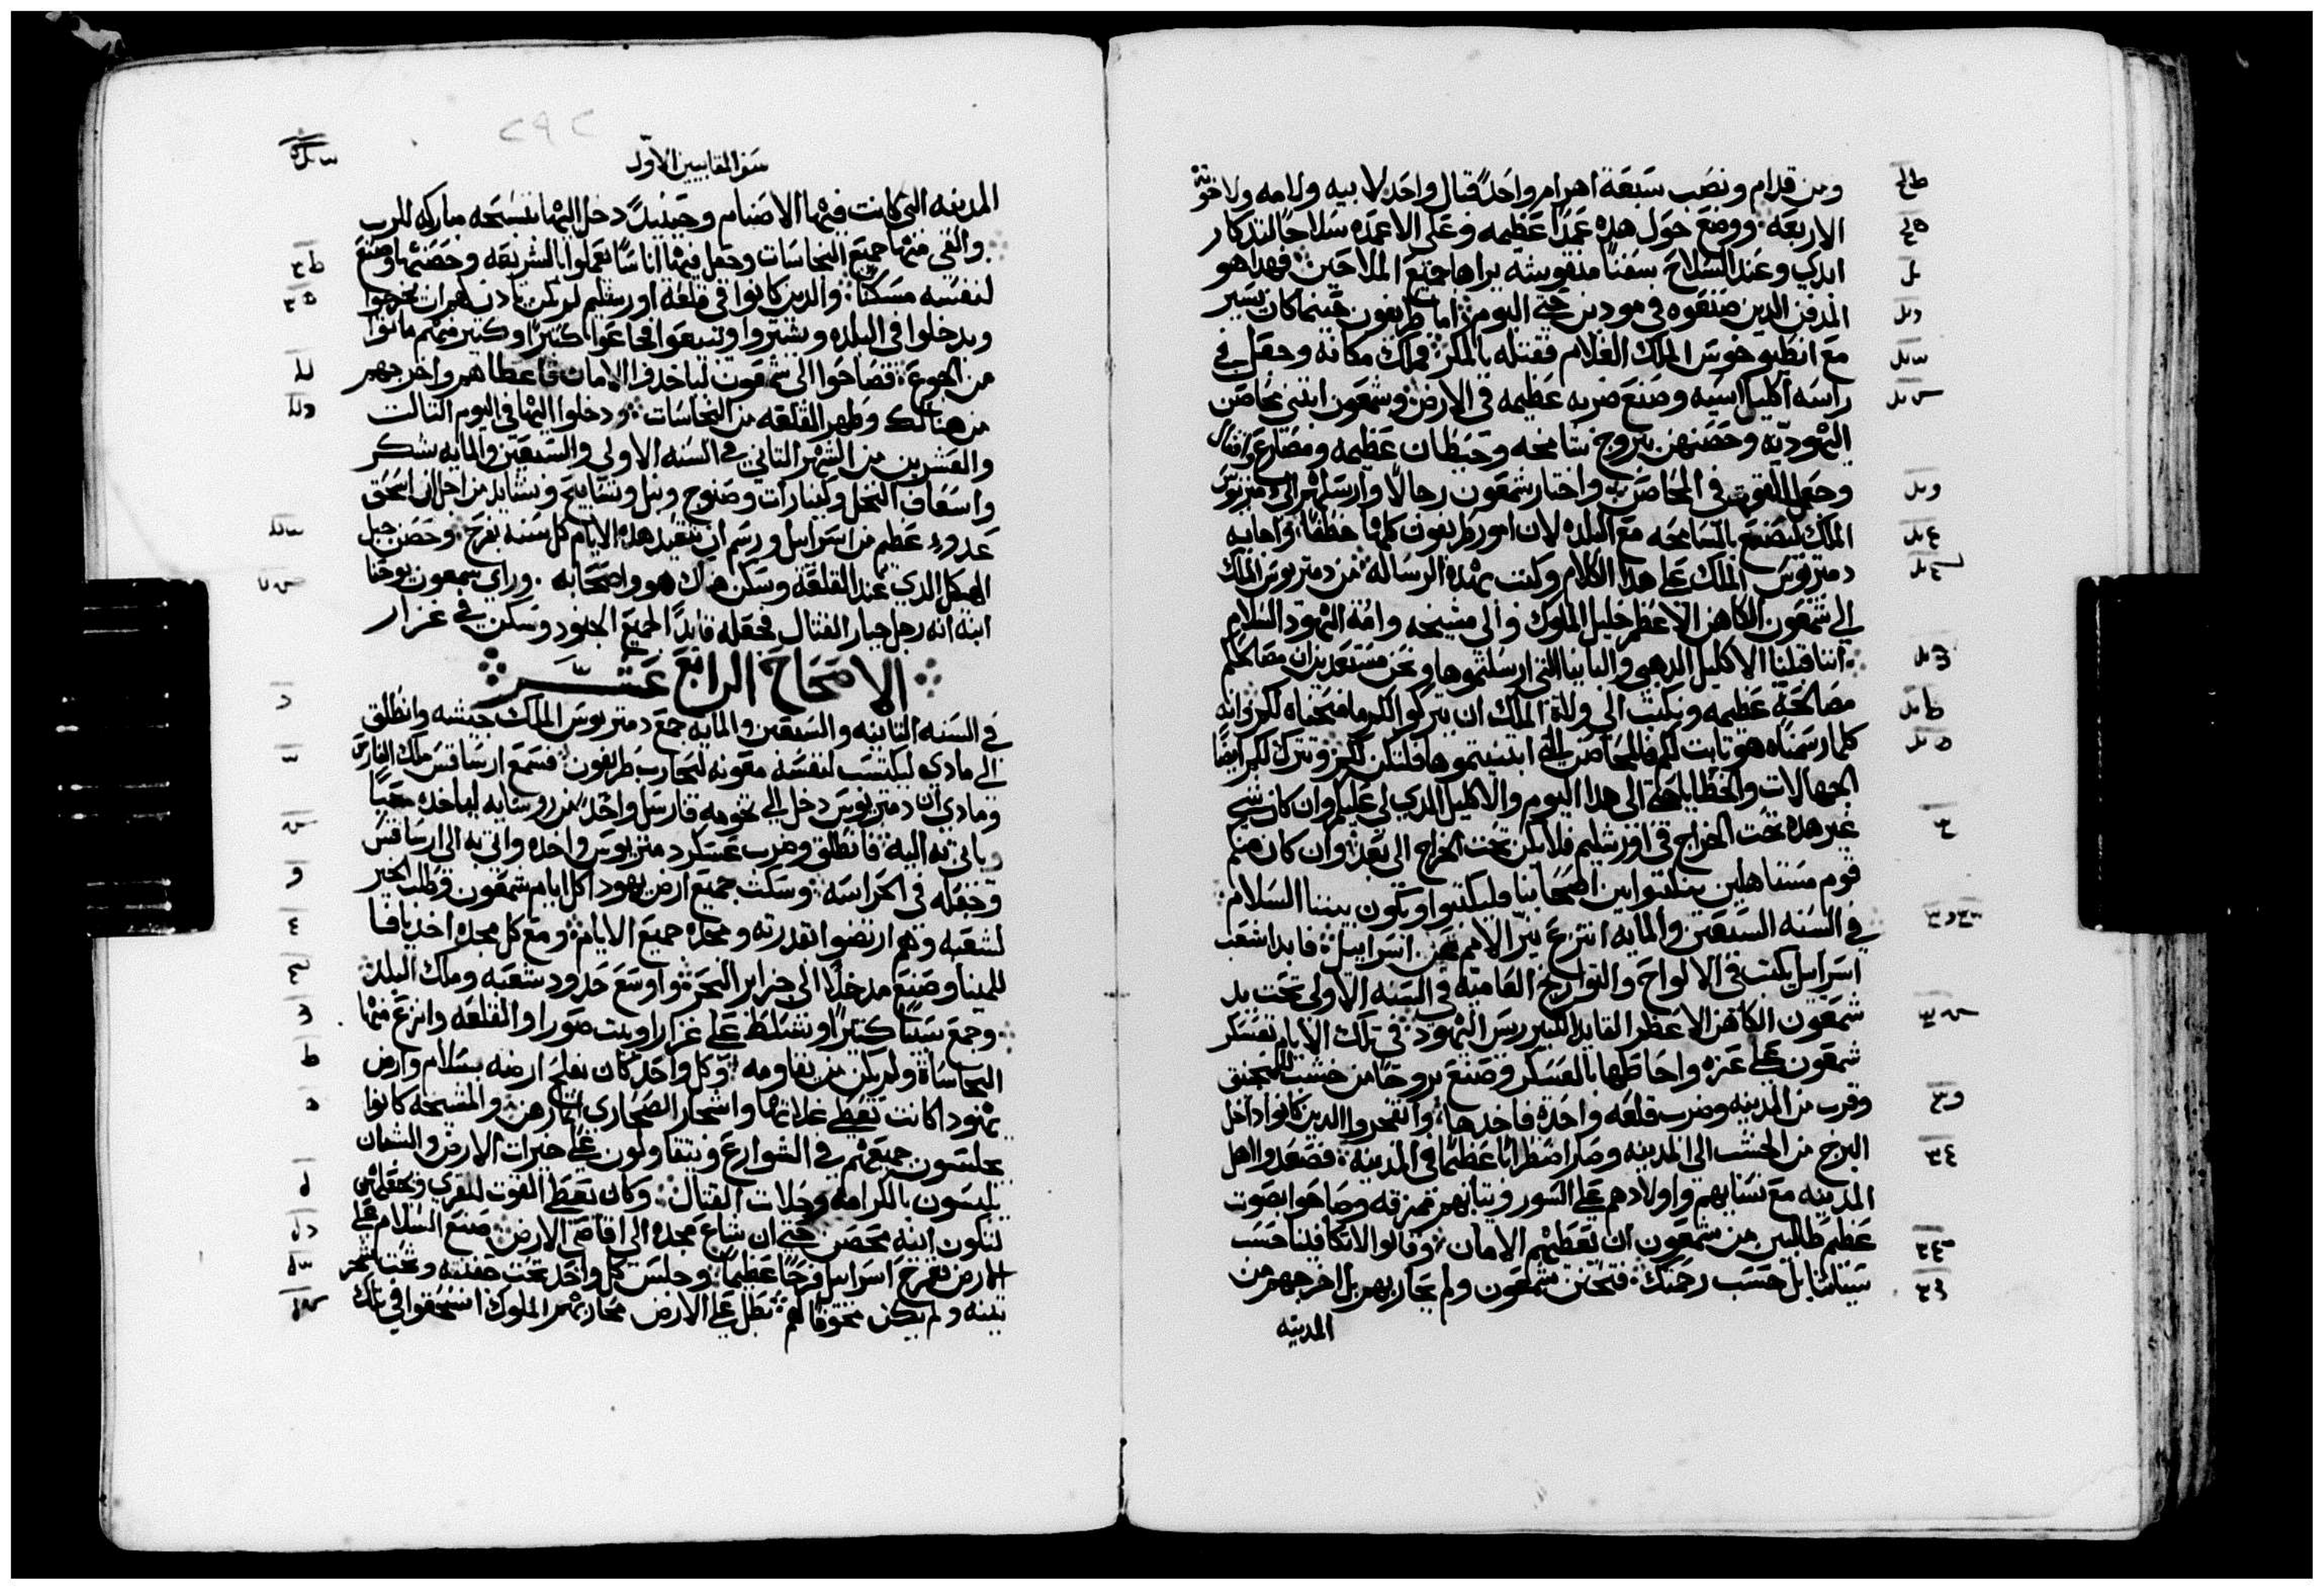 ومن قدام ونصب سبعة اهرام واحد قبال واحد لابيه ولامه ولاخوته
الاربعه. ووضع حول هذه عمدًا عظيمه وعلى الاعمده سلاحًا لتدكار
ابدي وعند السلاح سفنًا منقوشه يراها جميع الملاحين فهدا هو
المدفن الدين صنعوه في مودين حتى اليوم. اما طريفون حينما كان يسير
مع انطيوخوس الملك الغلام فقتله بالمكر. وملك مكانه وجعل في
راسه اكليل اسيه وصنع ضربه عظيمه في الارض. وشمعون ابتنى محاصن
اليهوديه وحصنهن ببروج شامخه وحيطان عظيمه ومصاريع واقفال
وجعل القوت في المحاصن. واختار شمعون رجالًا وارسلهم الى دمتريوس
الملك ليصنع بالسامحه مع البلده لان امور طريفون كلها خطفًا. واجابه
دمتريوس الملك على هدا الكلام وكتب بهذه الرساله. من دمتريوس الملك
الى شمعون الكاهن الاعظم خليل الملوك والى مشيخه وامة اليهود السلام
اننا قبلنا الاكليل الدهبي والبابيا التي ارسلتموها ونحن مستعدين ان نصالحكم
مصالحة عظيمه ونكتب الى ولاة الملك ان يتركوا لكم ما منحناه لكم وانه
كلما رسمناه هو تابت لكم فالمحاصن التي ابتنيتموها فلتكن لكم ونترك لكم ايضًا
الجهالات والخطايا حتى الى هدا اليوم والاكليل الدي لي عليكم وان كان شي
غير هده تحت الخراج في اورشليم فلا يكن تحت الخراج الى بعد. وان كان منكم
قوم مستاهلين يكتتبوا بين اصحابنا فليكتتبوا ويكون بيننا السلام
في السنه السبعين والمايه انتزع نير الامم عن اسراييل. فابدا شعب
اسراييل يكتب في الالواح والتواريخ العاميه في السنه الاولى تحت يد
شمعون الكاهن الاعظم القايد الكبير ريس اليهود. في تلك الايام تعسكر
شمعون على غزه واحاطها بالعسكر وصنع بروجًا من خشب للمنجنيق
وقرب من المدينه وضرب قلعه واحدة فاخدها. وانفجروا الدين كانوا داخل
البرج من الخشب الى المدينه وصار اضطرابًا عظيمًا في المدينه. فصعدوا اهل
المدينه مع نسايهم واولادهم على السور وتيابهم ممزقه وصاحوا بصوت
عظيم طالبين من شمعون ان يعطيهم الامان. وقالوا لا تكافينا حسب
سيياتنا بل حسب رحمتك. فتحنن شمعون ولم يحاربهم بل اخرجهم من
المدينه
٢٩٢
سفر المقابيين الاول
المدينه التي كانت فيها الاصنام وحينيدً دخل اليها بتسبحه مباركه للرب
والقى منها جميع النجاسات وجعل فيها اناسًا يعملوا بالشريعه وحصنها وصنع
لنفسه مسكنًا. والدين كانوا في قلعة اورشليم لم يكن يادن لهم ان يخرجوا
ويدخلوا في البلده ويشتروا وتبيعوا فجاعوا كتيرًا وكتير منهم ماتوا
من الجوع. فصاحوا الى شمعون لياخدوا الامان فاعطاهم واخرجهم
من هنالك وطهر القلعه من النجاسات. ودخلوا اليها في اليوم التالت
والعشرين من الشهر التاني في السنه الاولى والسبعين والمايه بشكر
واسعاف النخل وكينارات وصنوج ونبل وتسابيح ونشايد من اجل ان انسحق
عدوا عظيم من اسراييل ورسم ان تتعيد هده الايام كل سنه بفرح. وحصن جبل
الهيكل الدي عند القلعه وسكن هناك هو واصحابه. وراى سمعون يوحنا
ابنه انه رجل جبار القتال فجعله قايدًا لجميع الجنود وسكن في غزار
الاصحاح الرابع عشر
في السنه التانيه والسبعين والمايه جمع دمتريوس الملك جيشه وانطلق
الى مادي ليكتسب لنفسه معونه ليحارب طريفون. فسمع ارساقس ملك الفارس
ومادي ان دمتريوس دخل الى تخومه فارسل واحدًا من روسايه لياخده حيًا
وياتي به اليه. فانطلق وضرب عسكر دمتريوس واخده واتى به الى ارساقس
وجعله في الحراسه. وسكت جميع ارض يهودا كل ايام شمعون وطلب الخير
لشعبه وهم ارتضوا بقدرته ومجده جميع الايام. ومع كل مجده اخد يافا
للمينا وصنع مدخلًا الى جزاير البحر. واوسع حدود شعبه وملك البلد
وجمع سبيًا كتيرًا وتسلط على غزارا وبيت صورا والقلعه وانزع منها
النجاساة ولم يكن من يقاومه. وكل واحد كان يفلح ارضه بسلام وارض
يهودا كانت تعطي غلاتها واشجار الصحاري اتمارهن. والمشيخه كانوا
يجلسون جميعهم في الشوارع ويتقاولون على خيرات الارض والشبان
يلبسون بالكرامه وحلات القتال. وكان يعطي القوت للقرى وبجعلهن
لتكون ابنيه محصن حتى ان شاع مجده الى اقاصي الارض. صنع السلام على
الارض بفرح اسراييل فرحًا عظيمًا. وجلس كل واحد تحت جفنته وتحت شجر
تينه ولم يكن مخوفًا لهم. بطل على الارض محاربهم الملوك انسحقوا في تلك